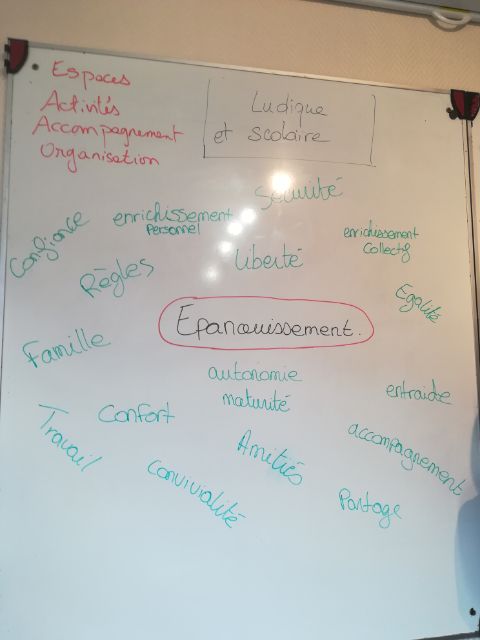 Espaces
Activités
Accompagnement
Organisation
Ludique
et scolaire
Sécurité
Confiance
enrichissement
Personnel
enrichissement
Collectif
Règles
Liberté
Egalité
Epanouissement.
Famille
autonomie
maturité
entraide
Confort
Travail
Amitiés
accompagnement
Convivialité
Partage